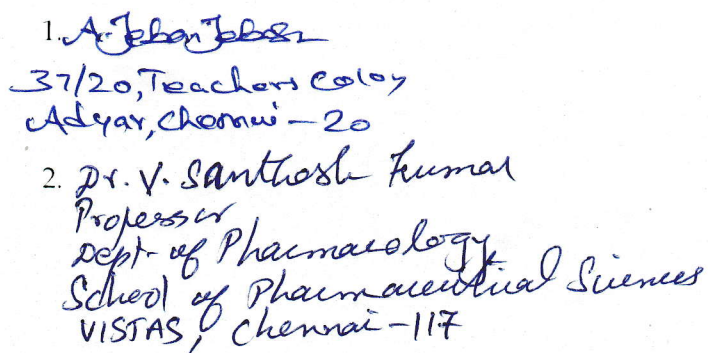 1. A. Jeban Jebas
37/20, Teachers Coloy
Adyar, Chennai - 20
2. Dr. V. Santhosh Kumar
Professor
Dept. of Pharmacology
School of Pharmaceutical Sciences
VISTAS, Chennai - 117